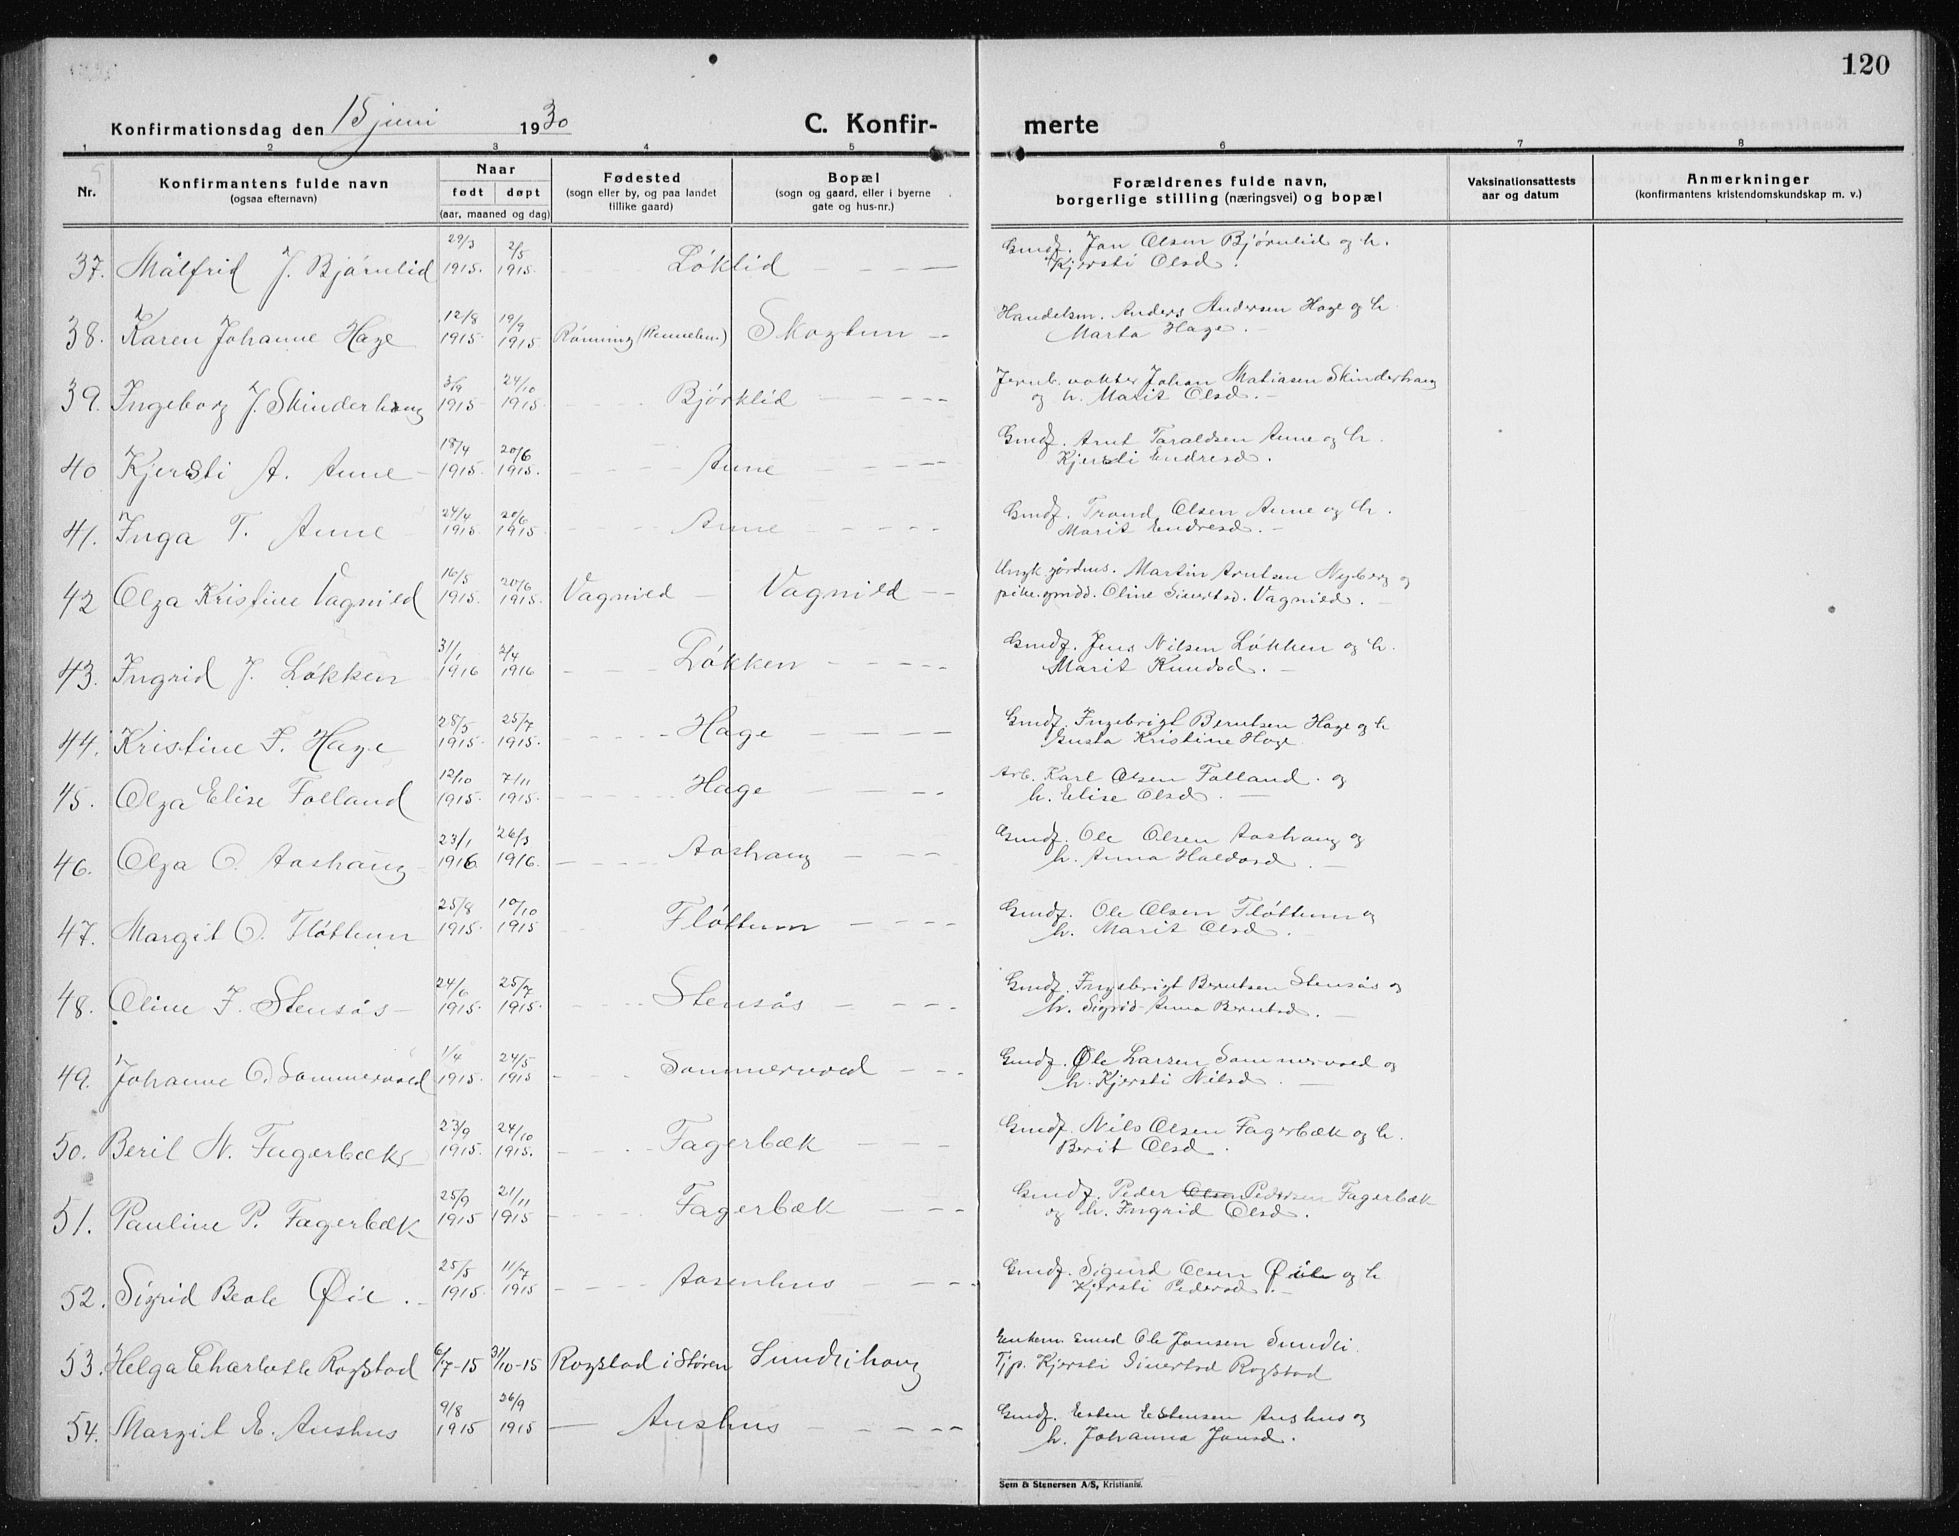 120
Konfirmationsdag den 15 juni 1930 C. Konfir- merte
1 2 3 4 5 6 7 8
Nr. Konfirmantens fulde navn (ogsaa efternavn) Naar født døpt (aar, maaned og dag) Fødested (sogn eller by, og paa landet tillike gaard) Bopæl (sogn og gaard, eller i byerne gate og hus-nr.) Forældrenes fulde navn, borgerlige stilling (næringsvei) og bopæl Vaksinationsattests aar og datum Anmerkninger (konfirmantens kristendomskundskap m. v.)
37. Målfrid J. Bjørnlid 29/3 1915. 2/5 1915. Løklid Gmdf. Jon Olsen Bjørnlid og h. Kjersti Olsd.
38. Karen Johanne Hage 12/8 1915. 19/9 1915. Rønning (Rennebu.) Skogtun Handelsm. Anders Andersen Hage og h. Marta Hage.
39. Ingeborg J. Skinderhaug 3/9 1915. 24/10 1915. Bjørklid Jernb. vokter Johan Matiasen Skinderhaug og h. Marit Olsd.
40 Kjersti A. Aune 18/4 1915. 20/6 1915. Aune Gmdf. Arnt Taraldsen Aune og h. Kjersti Endresd.
41. Inga T. Aune 24/4 1915. 20/6 1915. Aune Gmdf. Trond Olsen Aune og h. Marit Endresd.
42 Olga Kristine Vagnild 16/5 1915. 20/6 1915. Vagnild Vagnild Ungk. Martin Arntsen Nyberg og pike. Oline Sivertsd. Vagnild.
43. Ingrid J. Løkken 31/1 1916 2/4 1916 Løkken Gmdf. Jens Nilsen Løkken og h. Marit Knudsd.
44. Kristine I. Hage 28/5 1915. 25/7 1915. Hage Gmdf. Ingebrigt Berntsen Hage og h Gusta Kristine Hage
45. Olga Elise Folland 12/10 1915. 7/11 1915. Hage Arb. Karl Olsen Folland. og h. Elise Olsd.
46. Olga O. Aashaug 23/1 1916. 26/3 1916. Aashaug Gmdf. Ole Olsen Aashaug og h. Anna Haldosd.
47. Margit O. Fløttum 25/8 1915. 10/10 1915 Fløttum Gmdf. Ole Olsen Fløttum og h. Marit Olsd.
48. Oline I. Stensås 24/6 1915. 25/7 1915. Stensås Gmdf. Ingebrigt Berntsen Stensås og h. Sigrid Anna Berntsd.
49. Johanne O. Sommervold 1/4 1915. 24/5 1915 Sommervold Gmdf. Ole Larsen Sommervold og h. Kjersti Nilsd.
50. Berit N. Fagerbæk 23/9 1915. 24/10 1915. Fagerbæk Gmdf. Nils Olsen Fagerbæk og h. Berit Olsd.
51. Pauline P. Fagerbæk 25/9 1915 21/11 1915 Fagerbæk Gmdf. Peder Olsen Pedersen Fagerbæk og h. Ingrid Olsd.
52. Sigrid Beate Øie. 25/5 1915. 11/7 1915 Aasenhus Gmdf. Sigurd Olsen Øie og h Kjersti Pedersd.
53. Helga Charlotte Rogstad 6/7-15 31/10-15 Rogstad i Støren Sundlihaug Enkem. Gmd Ole Jonsen Sundli. Tjp. Kjersti Sivertsd Rogstad
54. Margit E. Aushus 9/8 1915 26/9 1915 Aushus Gmdf. Esten Estensen Aushus og h. Johanna Jonsd.
Sem & Stenersen A/S, Kristiania.